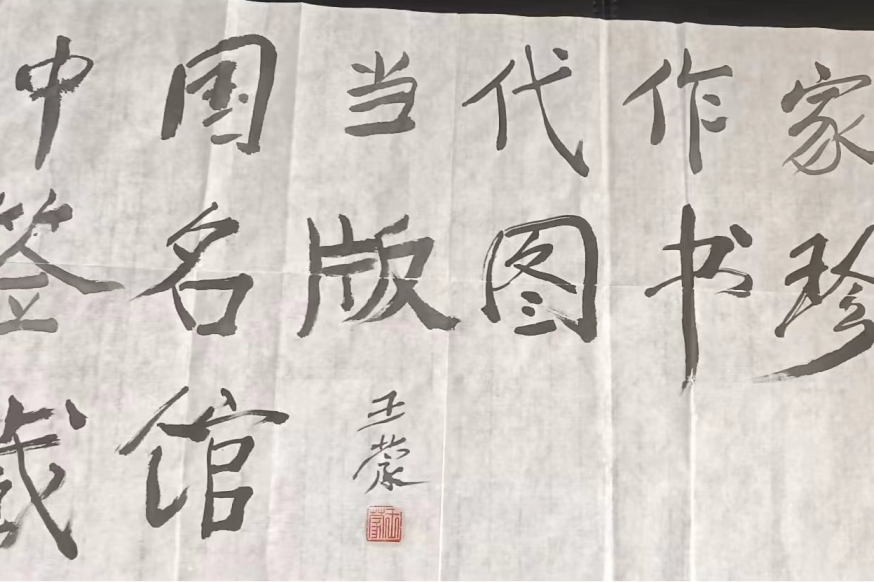 中国当代作家
签名版图书珍
藏馆
王蒙
王蒙